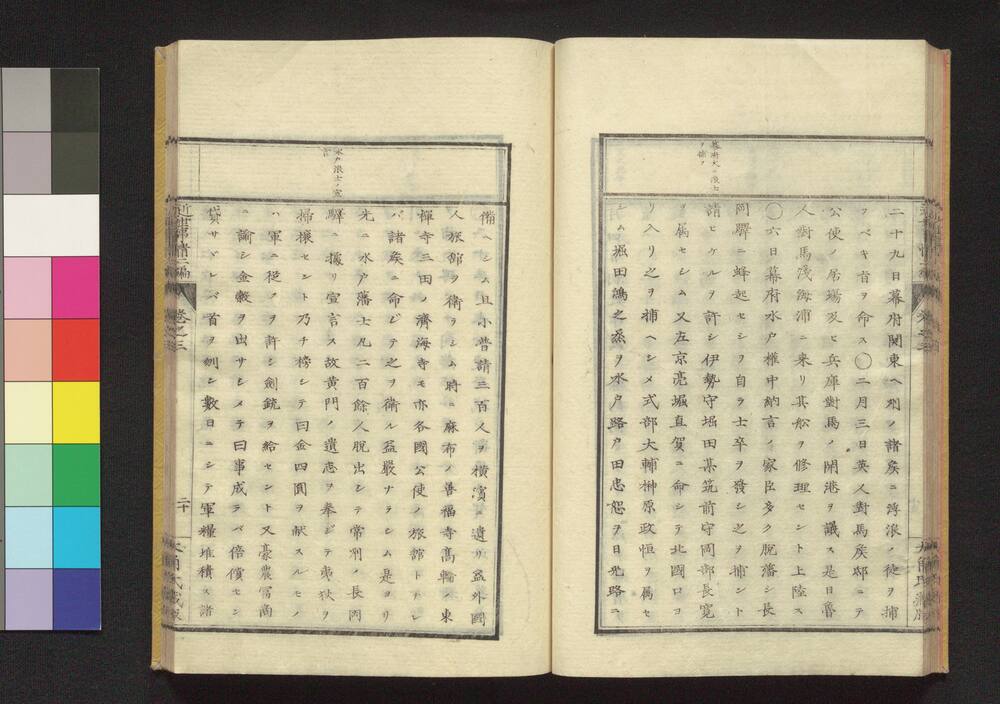 幕府大ニ浪士
ヲ捕フ
二十九日幕府関東八州ノ諸矦ニ浮浪ノ徒ヲ捕
フベキ旨ヲ命ス〇二月三日英人對馬矦邸ニテ
公使ノ居場及ヒ兵庫對馬ノ開港ヲ議ス是日魯
人對馬淺海浦ニ来リ其舩ヲ修理セント上陸ス
〇六日幕府水户權中納言ノ家臣多ク脱藩シ長
岡驛ニ蜂起セシヲ自ラ士卒ヲ發シ之ヲ捕ント
請ヒケルヲ許シ伊勢守堀田某筑前守岡部長寛
ヲ属セシム又左京亮堀直賀ニ命シテ北國口ヨ
リ入リ之ヲ捕ヘシメ式部大輔榊原政恒ヲ属セ
シム堀田鴻之丞ヲ水户路户田忠恕ヲ日光路ニ
水户浪士ノ宣
言
備ヘシム且小普請三百人ヲ横濱ニ遣リ益外國
人旅舘ヲ衛ラシム時ニ麻布ノ善福寺高輪ノ東
禅寺三田ノ濟海寺モ亦各國公使ノ旅舘トナレ
バ諸矦ニ命ジテ之ヲ衛ル益嚴ナラシム是ヨリ
先ニ水户藩士凡二百餘人脱出シテ常州ノ長岡
驛ニ據リ宣言ス故黄門ノ遺志ヲ奉ジテ夷狄ヲ
掃攘セント乃チ榜シテ曰金四圓ヲ献スルモノ
ハ軍ニ従フヲ許シ劍銃ヲ給セント又豪農富商
ニ諭シ金穀ヲ出サシメテ曰事成テバ倍償セン
貸サヾレバ首ヲ刎シ數日ニシテ軍糧堆積ス諸
卷之三
二十